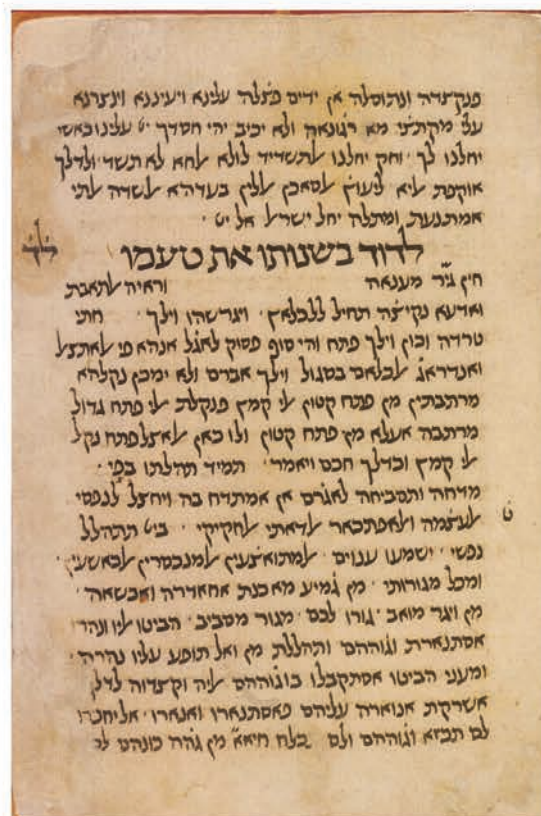 פנקצדה ונתוסלה אן ידים פצלה עלינא ויעיננא וינצרנא
עלי מא ולא יכיב יהי חסדך יט עלינו כאשי
יחלנו לך וחק יחלנו לתשדיד לולא לחא לא תשד ולדלך
אוקפת ליא ללין בעדהא לשדה לתי
אמתנעת ומתלה יחל ישראל אל יט
לדוד בשנותו את טעמו
לד
חין גיר מענאה וראיה לתאבת
ואדעא נקיצה תחיל ויגרשהו וילך חתי
טרדה וכון וילך פתח והי סוף פסוק לאגל אנהא פי לאתצל
ואנדראג בסגול וילך אברם ולא ימכן נקלהא
מרתבתין מן פתח קטון לי קמץ פנקלת לי פתח גדול
מרתבה אעלא מן פתח קטון ולו כאן לאצל פתח נקל
לי קמץ וכדלך חכם ויאמר תמיד תהלתו בפי
מדחה ותסביחה לאגרם אן אמתדח בה ויחצל לנפסי
לעצמה ולאפתכאר לדאתי לחקיקי ביט תתהלל
ט
נפשי ישמעו ענוים למתואצעין למנכסרין לכאשעין
ומכל מגורותי מן גמיע מא כנת אחאדרה ואכשאה
מן ויגר מואב גורו לכם מגור מסביב הביטו ליו ונהרו
אסתנארת וגוההם ותהללת מן ואל תופע עליו נהרה
ומעני הביטו אסתקבלו בוגוההם ליה וקצדוה לדלך
אשרקת אנוארה עליהם פאסתנארו ואנארו אל יחפרו
לם תכזא וגוההם ולם חיאא מן גהה כונהם לם